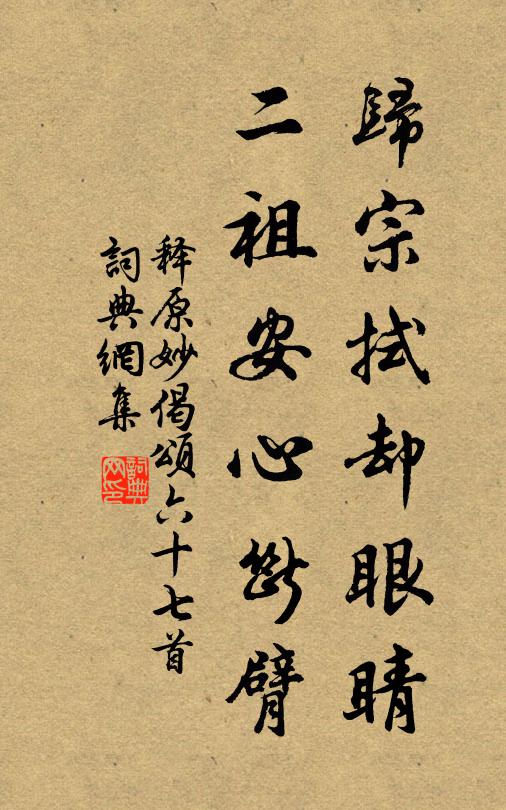 歸宗拭却眼睛
二祖安心斷臂
释原妙偈頌六十七首
詞典網集
詞典网印